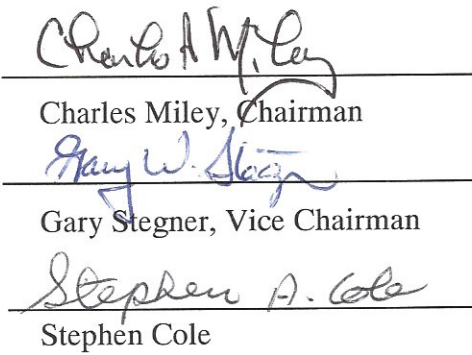 Charles A Miley
Charles Miley, Chairman
Gary W. Stegner
Gary Stegner, Vice Chairman
Stephen A. Cole
Stephen Cole